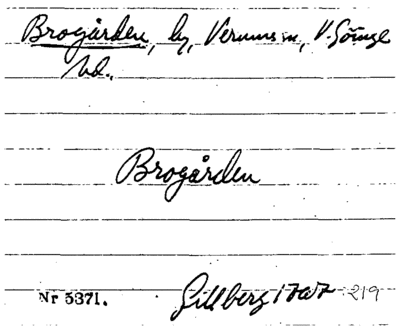 Brogården, by, Verums sn, V. Göinge
hd.
Brogården
Nr 5371. Gillberg 1767 219